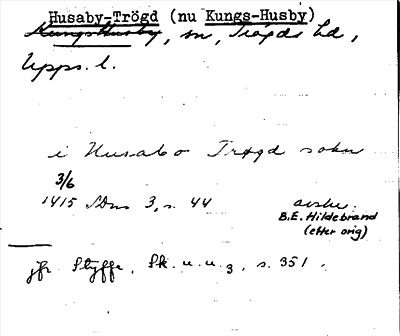 Husaby-Trögd (nu Kungs-Husby)
Kungshusby, sn, Trögds hd,
Upps. l.
i Husabo Trøgd sokn
3/6
1415 SDns 3, s. 44 avskr.
B.E. Hildebrand
(efter orig)
jfr Styffe, Sk. u. u. 3, s. 351.